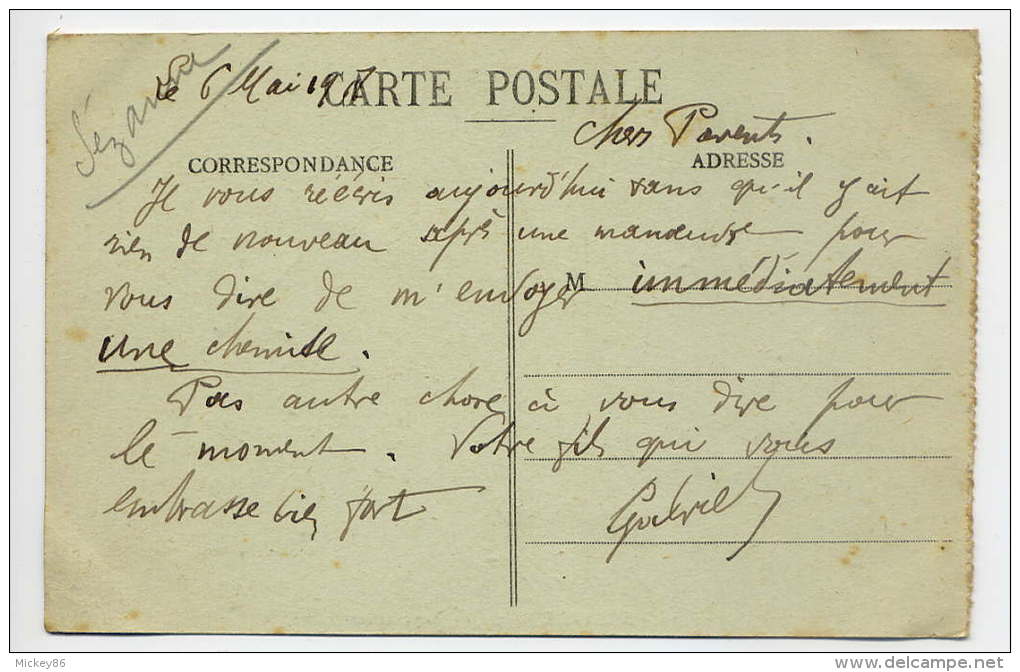 Sézanne
le 6 Mai 19
CARTE POSTALE
Chers Parents.
CORRESPONDANCE
ADRESSE
Je vous réécris aujourd'hui sans qu'il y ait
rien de nouveau après une manœuvre pour
vous dire de m'envoyer M immédiatement
une chemise.
Pas autre chose à vous dire pour
le moment. Votre fils qui vous
embrasse bien fort
Gabriel
Mickey86
www.delcampe.net